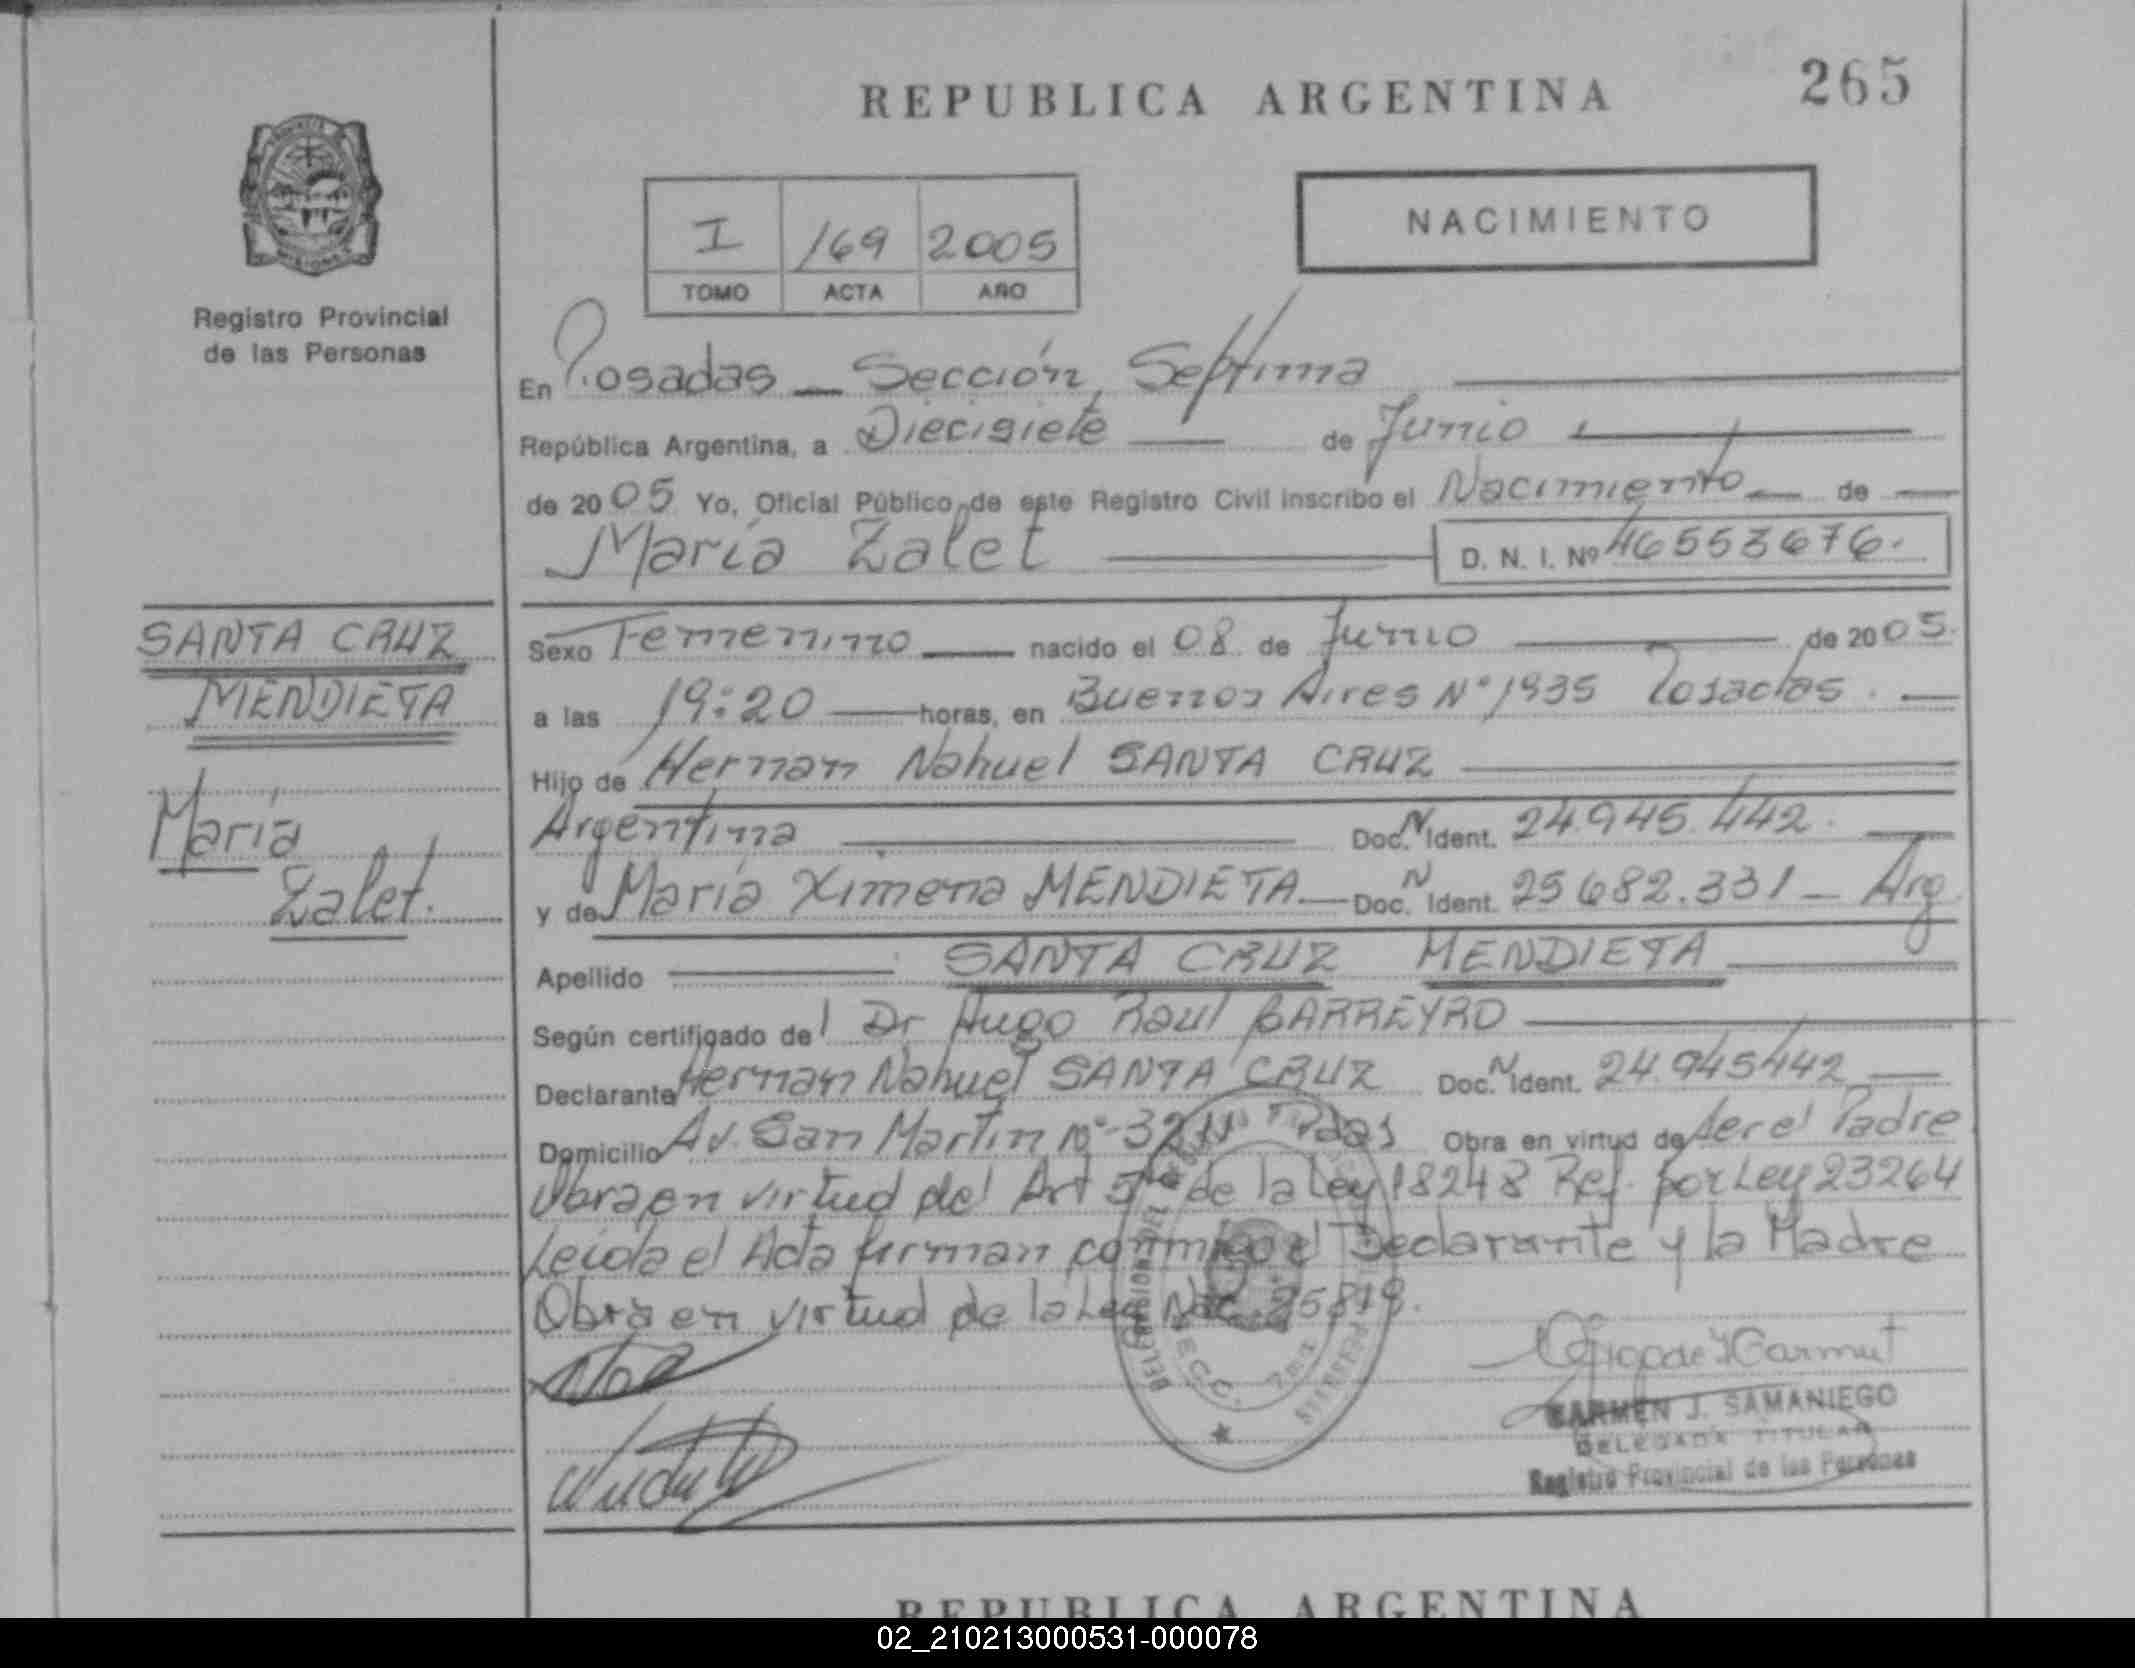 REPUBLICA ARGENTINA
265
Registro Provincial
de las Personas
I 169 2005
TOMO ACTA AÑO
NACIMIENTO
En Posadas — Sección, Septima
República Argentina, a Diecisiete de Junio
de 2005 Yo, Oficial Público de este Registro Civil inscribo el Nacimiento de
María Zalet D. N. I. Nº 46553676.
SANTA CRUZ
MENDIETA
María
Zalet.
Sexo Femenino nacido el 08 de Junio de 2005.
a las 19:20 horas, en Buenos Aires Nº 1935 Posadas.
Hijo de Hernan Nahuel SANTA CRUZ
Argentina Doc. N Ident. 24.945.442.
y de María Ximena MENDIETA — Doc. N Ident. 25682.331 — Arg.
Apellido SANTA CRUZ MENDIETA
Según certificado del Dr Hugo Raul BARREYRO
Declarante Hernan Nahuel SANTA CRUZ Doc. N Ident. 24.945442
Domicilio Av. San Martin Nº Pdas Obra en virtud de ser el Padre
Obra en virtud del Art 5to de la Ley 18248 Ref. por Ley 23264
Leida el Acta firman conmigo el Declarante y la Madre
Obra en virtud de la Ley Nac.
CARMEN J. SAMANIEGO
DELEGADA TITULAR
Registro Provincial de las Personas
REPUBLICA ARGENTINA
02_210213000531-000078